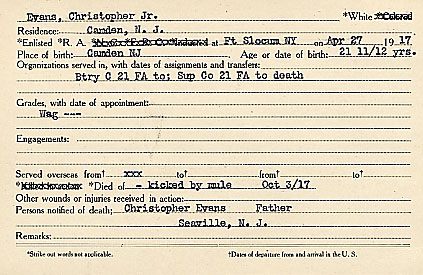 Evans, Christopher Jr. *White *Colored
Residence: Camden, N. J.
*Enlisted *R. A. at Ft Slocum NY on Apr 27 1917
Place of birth: Camden NJ Age or date of birth: 21 11/12 yrs.
Organizations served in, with dates of assignments and transfers:
Btry C 21 FA to; Sup Co 21 FA to death
Grades, with date of appointment:
Wag ---
Engagements:
Served overseas from† xxx to† from† to†
*Died of - kicked by mule Oct 3/17
Other wounds or injuries received in action:
Persons notified of death; Christopher Evans Father
Seaville, N. J.
Remarks:
*Strike out words not applicable. †Dates of departure from and arrival in the U. S.